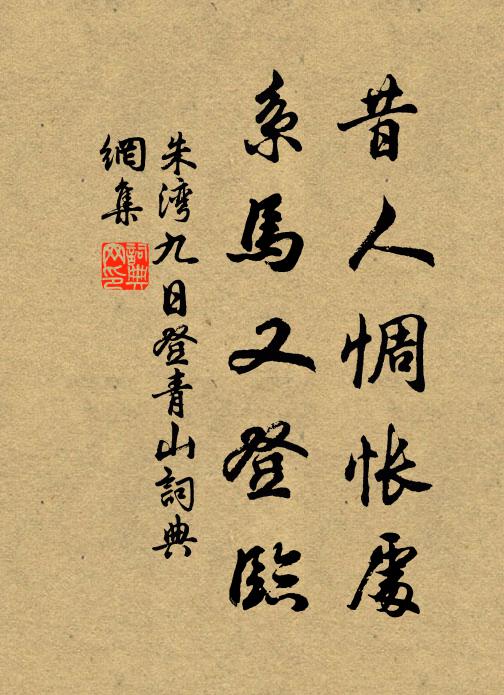 昔人惆悵處
系馬又登臨
朱湾九日登青山詞典
網集
詞典
网印